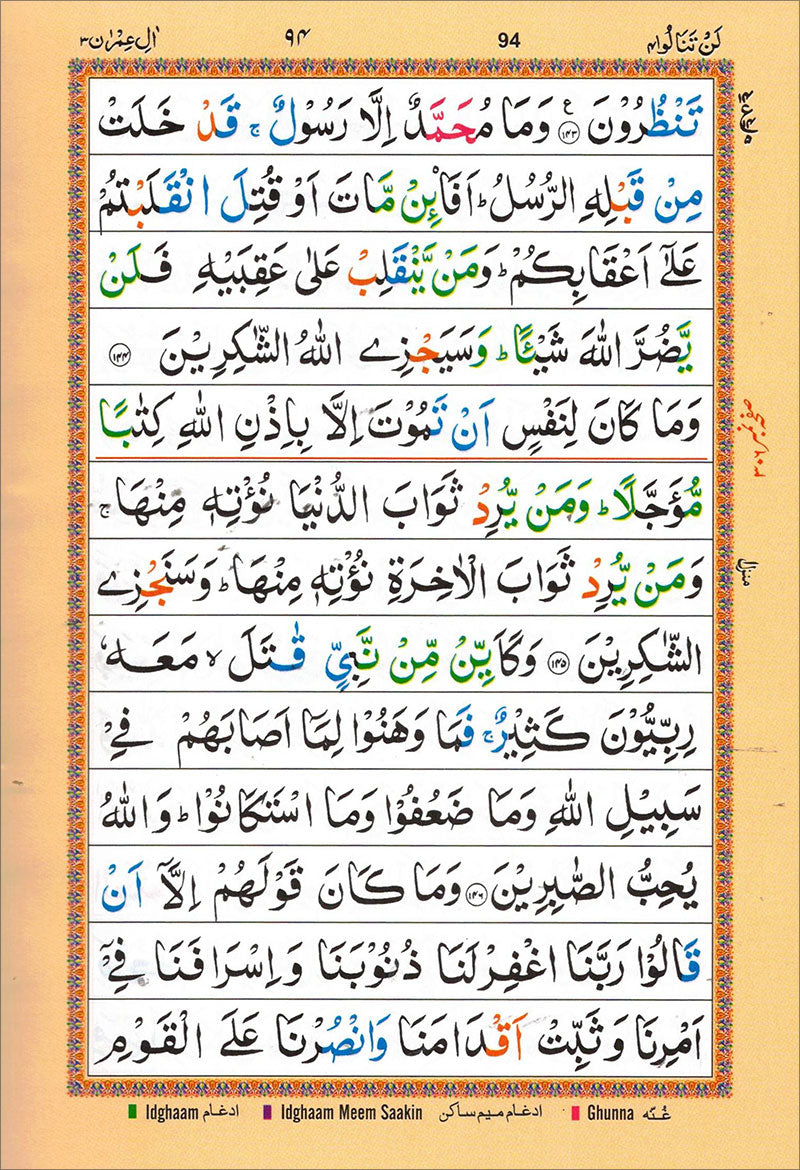 لَنْ تَنَالُوا۴ 94 ۹۴ اٰلِ عِمْرٰن۳
تَنْظُرُوْنَ ﴿۱۴۳﴾ ع وَمَا مُحَمَّدٌ اِلَّا رَسُوْلٌ ۚ قَدْ خَلَتْ
مِنْ قَبْلِهِ الرُّسُلُ ؕ اَفَا۟ئِنْ مَّاتَ اَوْ قُتِلَ انْقَلَبْتُمْ
عَلٰٓى اَعْقَابِكُمْ ؕ وَمَنْ يَّنْقَلِبْ عَلٰى عَقِبَيْهِ فَلَنْ
يَّضُرَّ اللّٰهَ شَيْـًٔا ؕ وَسَيَجْزِى اللّٰهُ الشّٰكِرِيْنَ ﴿۱۴۴﴾
وَمَا كَانَ لِنَفْسٍ اَنْ تَمُوْتَ اِلَّا بِاِذْنِ اللّٰهِ كِتٰبًا
مُّؤَجَّلًا ؕ وَمَنْ يُّرِدْ ثَوَابَ الدُّنْيَا نُؤْتِهٖ مِنْهَا ۚ
وَمَنْ يُّرِدْ ثَوَابَ الْاٰخِرَةِ نُؤْتِهٖ مِنْهَا ؕ وَسَنَجْزِى
الشّٰكِرِيْنَ ﴿۱۴۵﴾ وَكَاَيِّنْ مِّنْ نَّبِيٍّ قٰتَلَ ۙ مَعَهٗ
رِبِّيُّوْنَ كَثِيْرٌ ۚ فَمَا وَهَنُوْا لِمَآ اَصَابَهُمْ فِيْ
سَبِيْلِ اللّٰهِ وَمَا ضَعُفُوْا وَمَا اسْتَكَانُوْا ؕ وَاللّٰهُ
يُحِبُّ الصّٰبِرِيْنَ ﴿۱۴۶﴾ وَمَا كَانَ قَوْلَهُمْ اِلَّآ اَنْ
قَالُوْا رَبَّنَا اغْفِرْ لَنَا ذُنُوْبَنَا وَاِسْرَافَنَا فِيْٓ
اَمْرِنَا وَثَبِّتْ اَقْدَامَنَا وَانْصُرْنَا عَلَى الْقَوْمِ
منزل
Idghaam ادغام Idghaam Meem Saakin ادغام میم ساکن Ghunna غُنّه